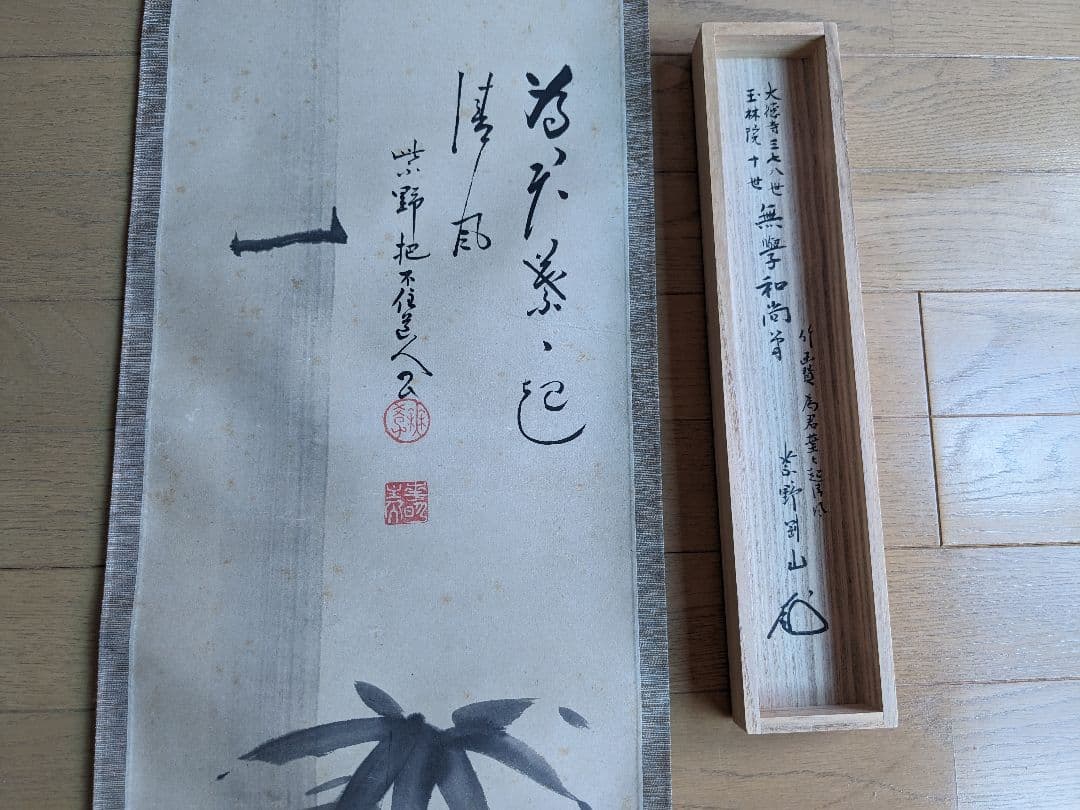 為君葉ゝ起
清風
紫野把不住道人
大徳寺三七八世
玉林院十世
無學和尚筆
竹画賛 為君葉々起清風
紫野剛山